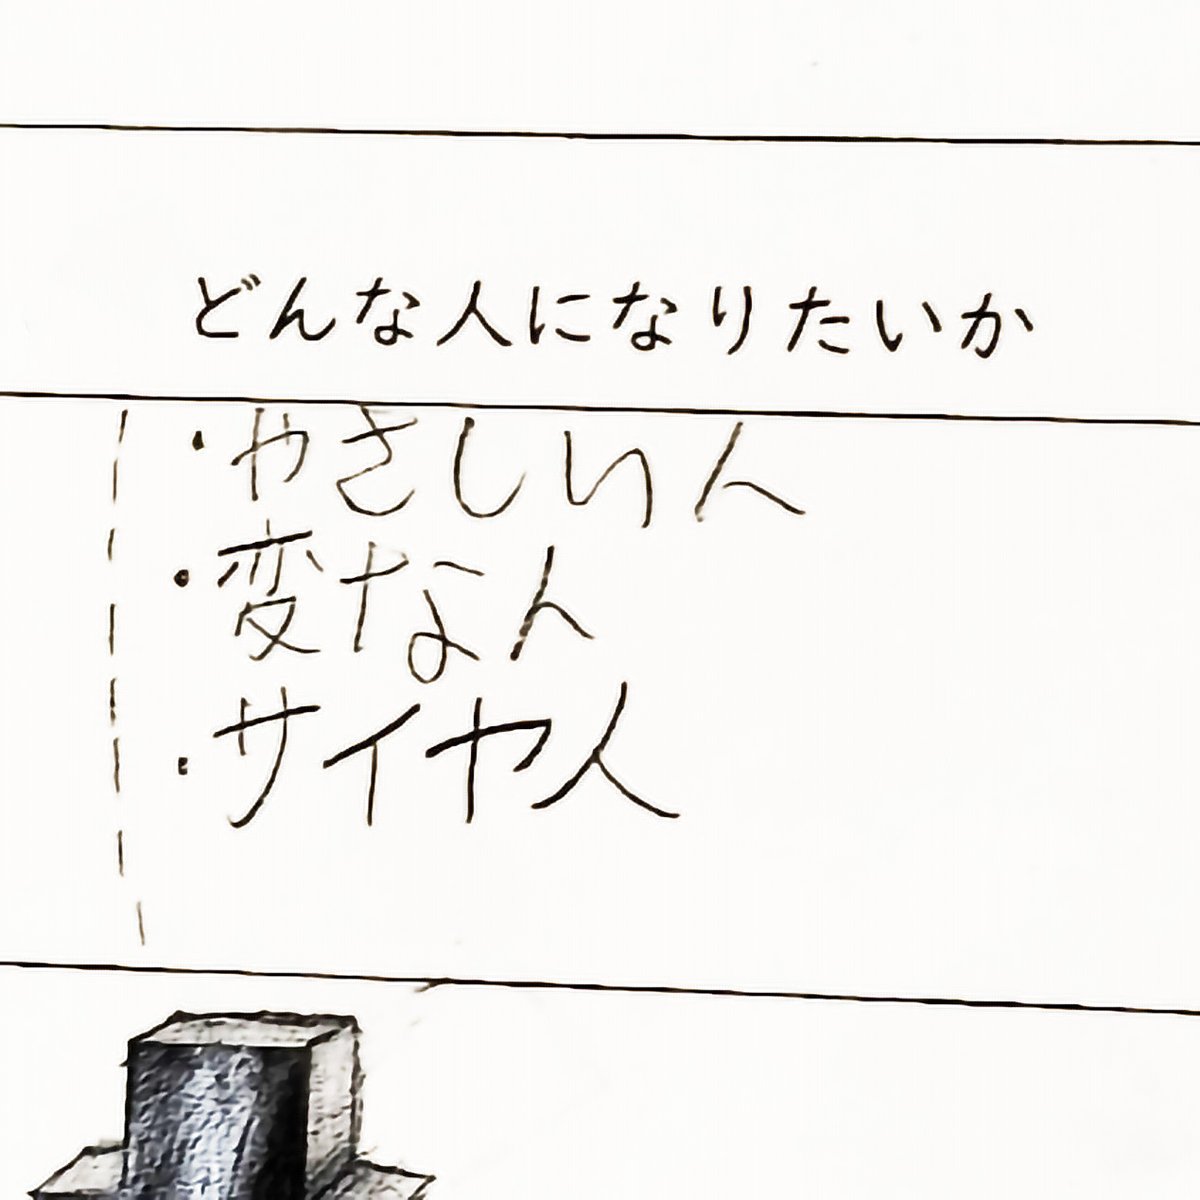 どんな人になりたいか
・やさしい人
・変な人
・サイヤ人